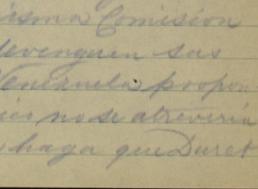 isma Comisión
devenguen sus
Venezuela propon
no se atrevería
haga que Duret